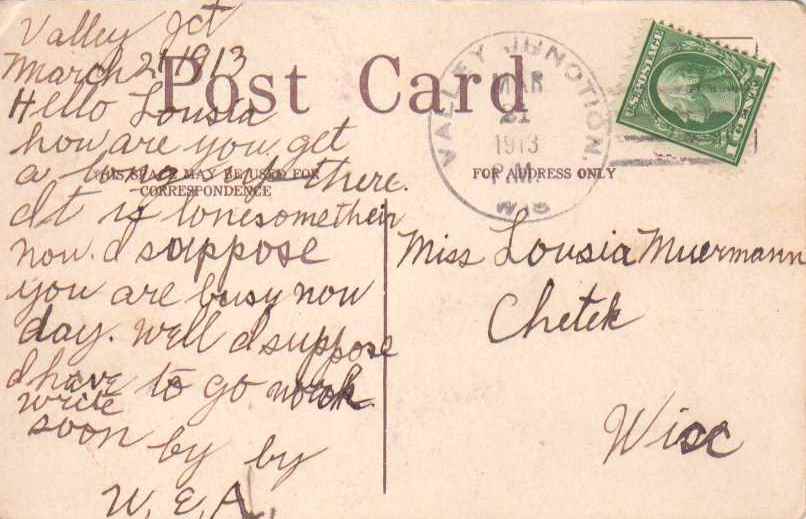 Valley Jct
March 21 1913
Post Card
Hello Lousia
how are you get
a long up there.
THIS SPACE MAY BE USED FOR
CORRESPONDENCE
It is lonesome their
now. I suppose
you are busy now
day. Well I suppose
I have to go work
write
soon by by
W. E. A.
VALLEY JUNCTION,
MAR
21
1913
P.M.
WIS
U.S. POSTAGE
FOR ADDRESS ONLY
Miss Lousia Muermann
Chetek
Wisc